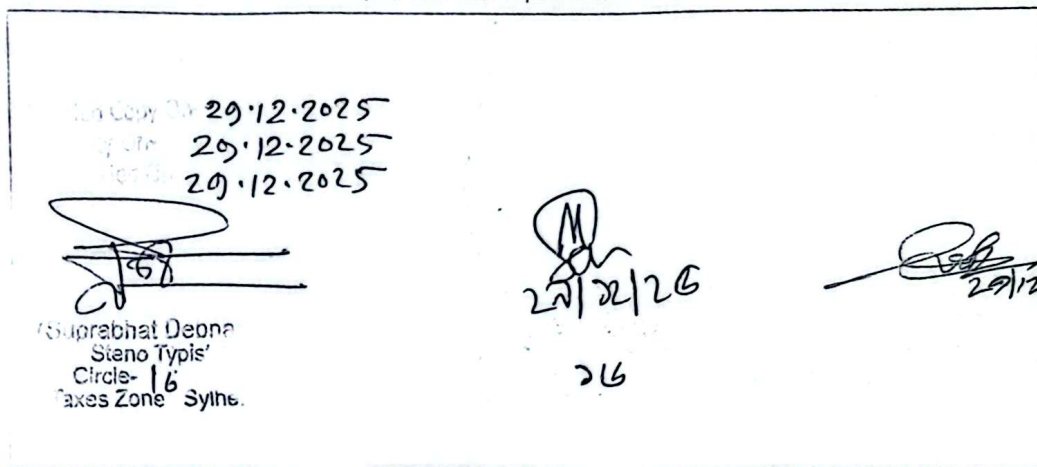 Copy 29.12.2025
29.12.2025
29.12.2025
Suprabhat Deona
Steno Typis
Circle- 16
axes Zone Sylhe
২৯/১২/২৫
১৬
29/12